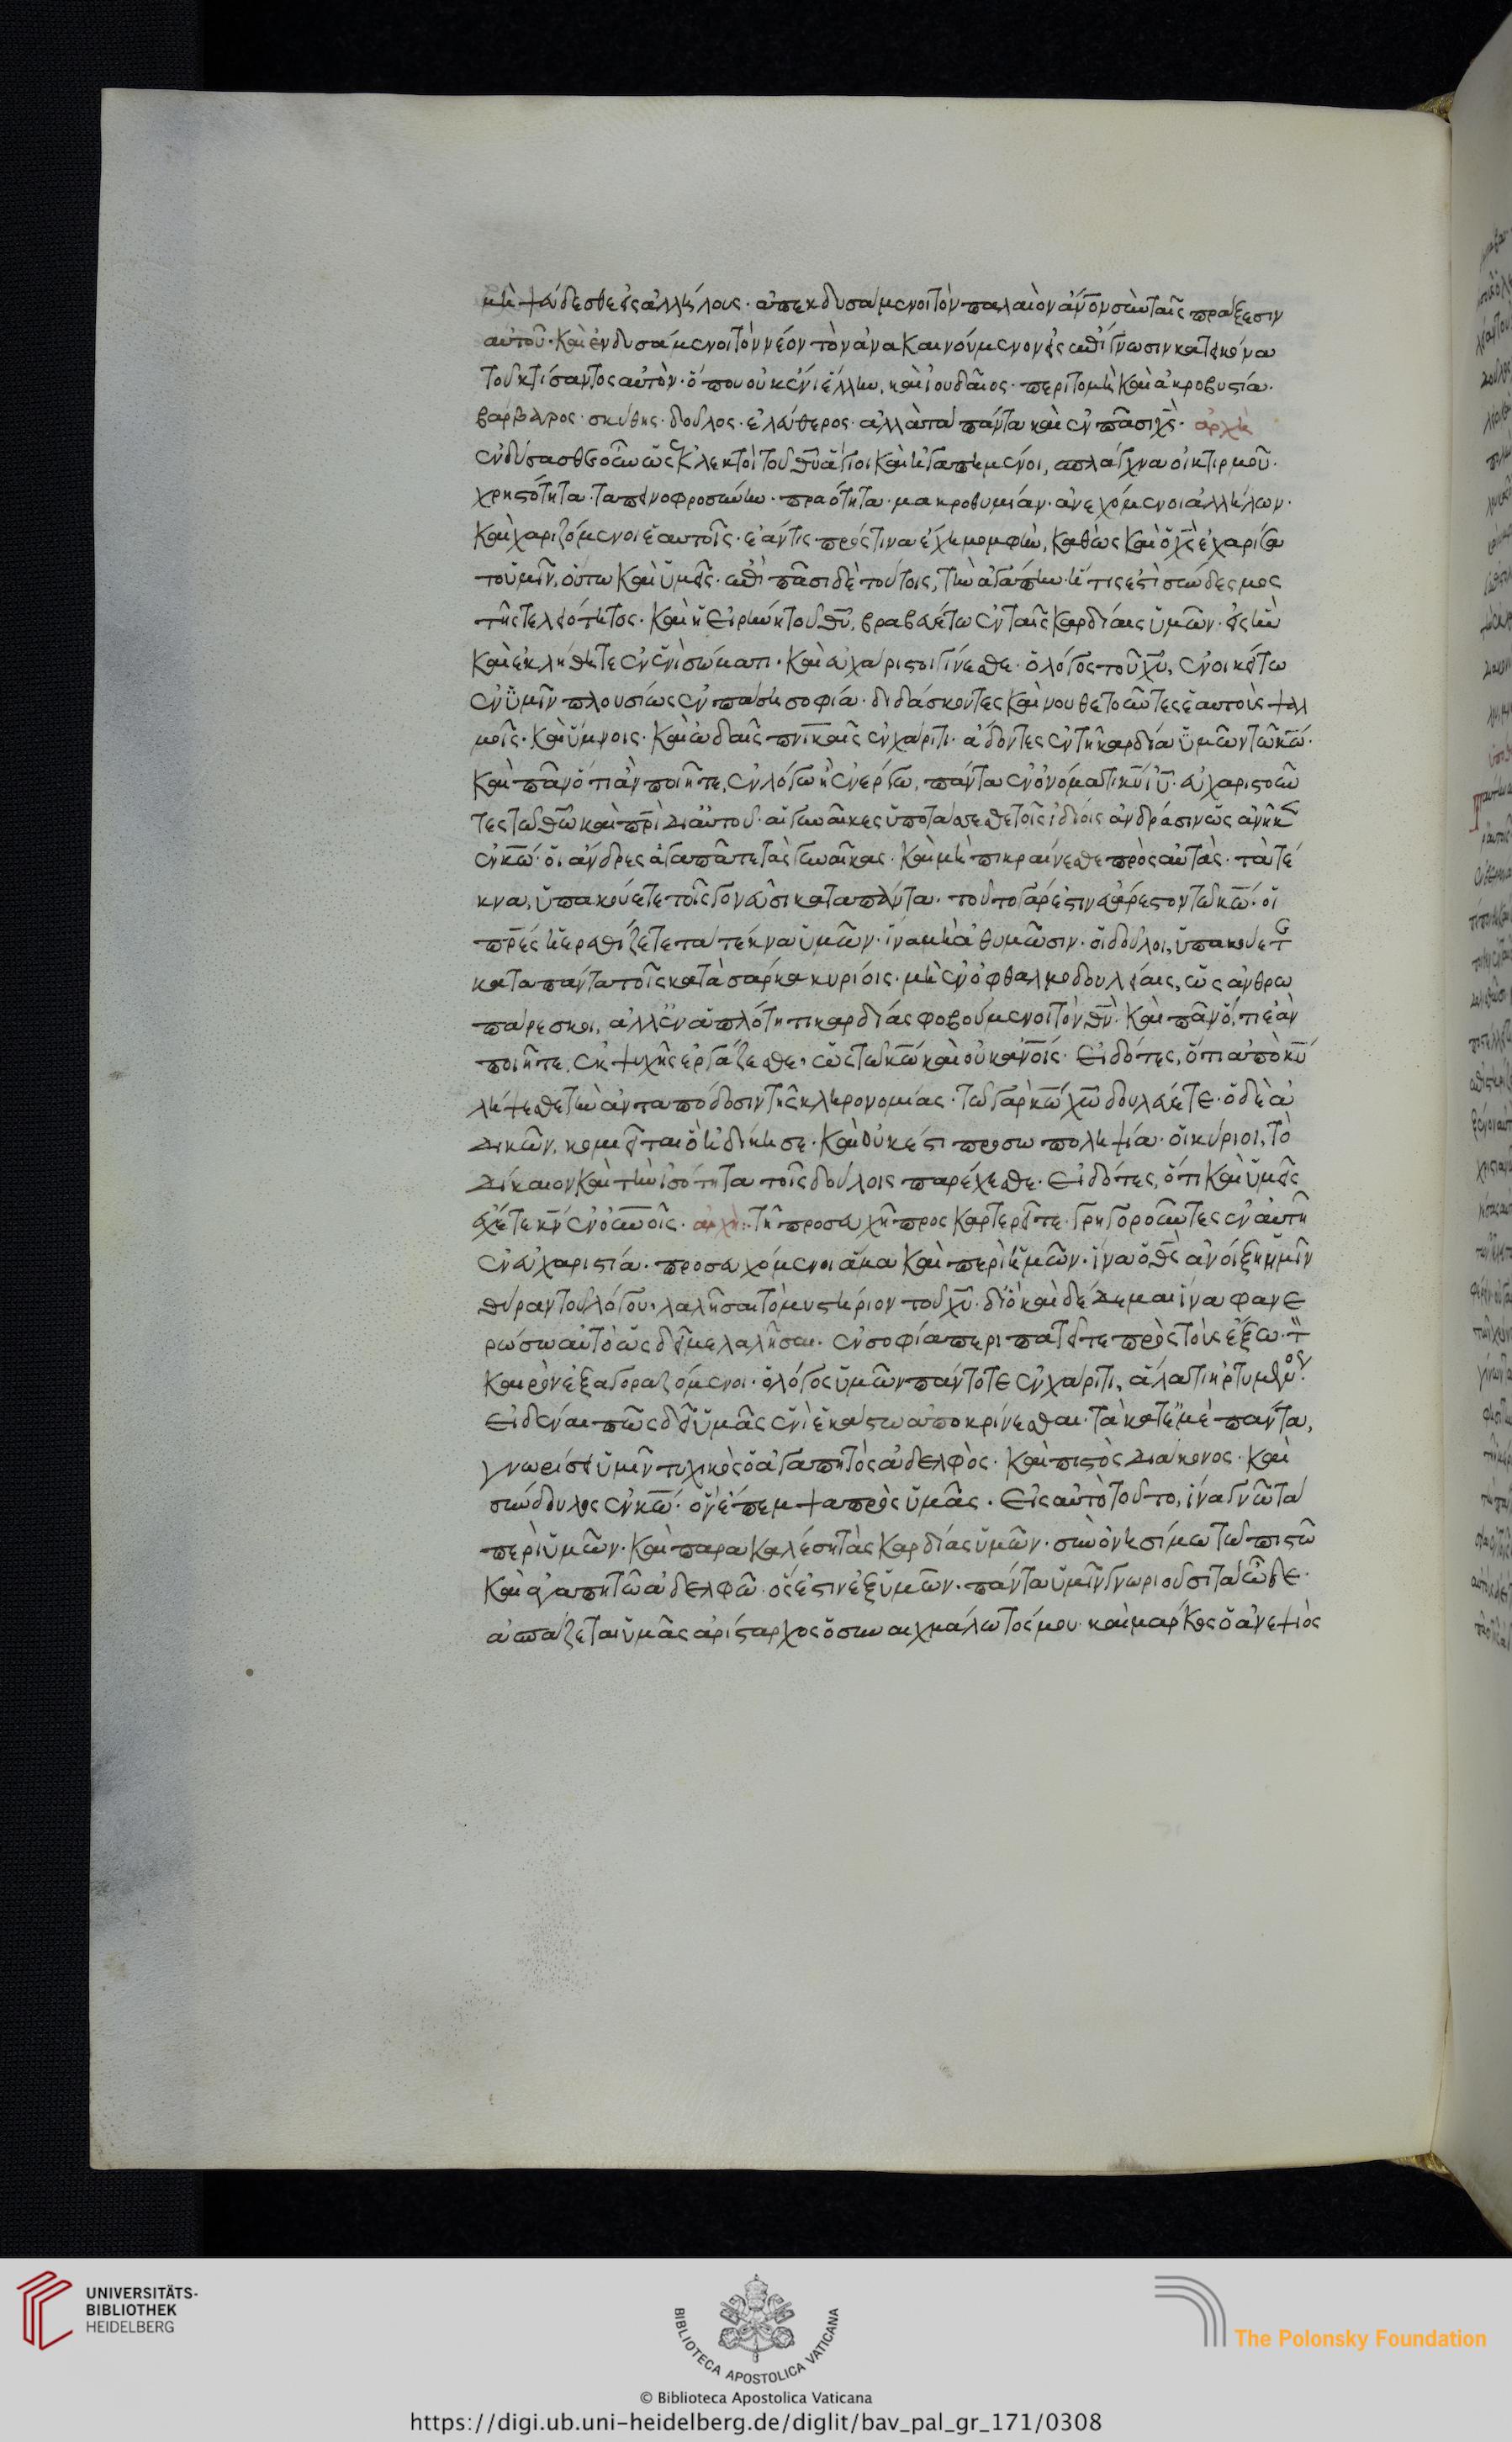 μὴ ψεύδεσθε εἰς ἀλλήλους· ἀπεκδυσάμενοι τὸν παλαιὸν ἄνον σὺν ταῖς πράξεσιν
αὐτοῦ· καὶ ἐνδυσάμενοι τὸν νέον τὸν ἀνακαινούμενον εἰς ἐπίγνωσιν κατ εἰκόνα
τοῦ κτίσαντος αὐτόν· ὅπου οὐκ ἔνι ἕλλην, καὶ ἰουδαῖος· περιτομὴ καὶ ἀκροβυστία·
βάρβαρος· σκύθης· δοῦλος· ἐλεύθερος· ἀλλὰ τὰ πάντα καὶ ἐν πᾶσι χς· ἀρχὴ
ἐνδύσασθε οὖν ὡς ἐκλεκτοὶ τοῦ θυ ἅγιοι καὶ ἠγαπημένοι, σπλάγχνα οἰκτιρμοῦ·
χρηστότητα· ταπεινοφροσύνην· πραότητα· μακροθυμίαν· ἀνεχόμενοι ἀλλήλων·
καὶ χαριζόμενοι ἑαυτοῖς· ἐάν τις πρός τινα ἔχη μομφὴν, καθὼς καὶ ὁ χς ἐχαρίσα
το ὑμῖν, οὕτω καὶ ὑμεῖς· ἐπὶ πᾶσι δὲ τούτοις, τὴν ἀγάπην· ἥτις ἐστὶ σύνδεσμος
τῆς τελειότητος· καὶ ἡ εἰρήνη τοῦ θυ, βραβευέτω ἐν ταῖς καρδίαις ὑμῶν· εἰς ἣν
καὶ ἐκλήθητε ἐν ἑνὶ σώματι· καὶ εὐχάριστοι γίνεσθε· ὁ λόγος τοῦ χυ, ἐνοικείτω
ἐν ὑμῖν πλουσίως ἐν πάση σοφία· διδάσκοντες καὶ νουθετοῦντες ἑαυτοὺς ψαλ
μοῖς· καὶ ὕμνοις· καὶ ὠδαῖς πνικαῖς ἐν χάριτι· ἄδοντες ἐν τῆ καρδία ὑμῶν τῶ κω·
καὶ πᾶν ὅτι ἂν ποιῆτε, ἐν λόγω ἢ ἐν ἔργω, πάντα ἐν ὀνόματι κυ ἰυ· εὐχαριστοῦν
τες τῶ θω καὶ πρι δι αὐτοῦ· αἱ γυναῖκες ὑποτάσσεσθε τοῖς ἰδίοις ἀνδράσιν ὡς ἀνῆκεν
ἐν κω· οἱ ἄνδρες ἀγαπᾶτε τὰς γυναῖκας· καὶ μὴ πικραίνεσθε πρὸς αὐτάς· τὰ τέ
κνα, ὑπακούετε τοῖς γονεῦσι κατα πάντα· τοῦτο γάρ ἐστιν εὐάρεστον τῶ κω· οἱ
πρες μὴ ἐρεθίζετε τὰ τέκνα ὑμῶν· ἵνα μὴ ἀθυμῶσιν· οἱ δοῦλοι, ὑπακούετε
κατα πάντα τοῖς κατὰ σάρκα κυρίοις· μὴ ἐν ὀφθαλμοδουλείαις, ὡς ἀνθρω
πάρεσκοι, ἀλλ ἐν ἁπλότητι καρδίας φοβούμενοι τὸν θν· καὶ πᾶν ὅ, τι ἐὰν
ποιῆτε, ἐκ ψυχῆς ἐργάζεσθε· ὡς τῶ κω καὶ οὐκ ἀνοις· εἰδότες, ὅτι ἀπὸ κυ
λήψεσθε τὴν ἀνταπόδοσιν τῆς κληρονομίας· τῶ γὰρ κω χω δουλεύετε· ὁ δὲ ἀ
δικῶν, κομιεῖται ὃ ἠδίκησε· καὶ οὐκ ἔστι προσωποληψία· οἱ κύριοι, τὸ
δίκαιον καὶ τὴν ἰσότητα τοῖς δούλοις παρέχεσθε· εἰδότες, ὅτι καὶ ὑμεῖς
ἔχετε κν ἐν οὐνοις· ἀρχὴ· τῆ προσευχῆ προσκαρτερεῖτε· γρηγοροῦντες ἐν αὐτῆ
ἐν εὐχαριστία· προσευχόμενοι ἅμα καὶ περὶ ἡμῶν· ἵνα ὁ θς ἀνοίξη ἡμῖν
θύραν τοῦ λόγου· λαλῆσαι τὸ μυστήριον τοῦ χυ· διὸ καὶ δέδεμαι ἵνα φανε
ρώσω αὐτὸ ὡς δεῖ με λαλῆσαι· ἐν σοφία περιπατεῖτε πρὸς τοὺς ἔξω· τὸν
καιρὸν ἐξαγοραζόμενοι· ὁ λόγος ὑμῶν πάντοτε ἐν χάριτι, ἅλατι ἠρτυμένος·
εἰδέναι πῶς δεῖ ὑμᾶς ἑνὶ ἑκάστω ἀποκρίνεσθαι· τὰ κατ ἐμὲ πάντα,
γνωρίσει ὑμῖν τυχικὸς ὁ ἀγαπητὸς ἀδελφὸς· καὶ πιστὸς διάκονος· καὶ
σύνδουλος ἐν κω· ὃν ἔπεμψα πρὸς ὑμᾶς· εἰς αὐτὸ τοῦτο, ἵνα γνῶ τὰ
περὶ ὑμῶν· καὶ παρακαλέση τὰς καρδίας ὑμῶν· σὺν ὀνησίμω τῶ πιστῶ
καὶ ἀγαπητῶ ἀδελφῶ· ὅς ἐστιν ἐξ ὑμῶν· πάντα ὑμῖν γνωριοῦσι τὰ ὧδε·
ἀσπάζεται ὑμᾶς ἀρίσταρχος ὁ συναιχμάλωτός μου· καὶ μάρκος ὁ ἀνεψιὸς
UNIVERSITÄTS-
BIBLIOTHEK
HEIDELBERG
BIBLIOTECA APOSTOLICA VATICANA
The Polonsky Foundation
© Biblioteca Apostolica Vaticana
https://digi.ub.uni-heidelberg.de/diglit/bav_pal_gr_171/0308